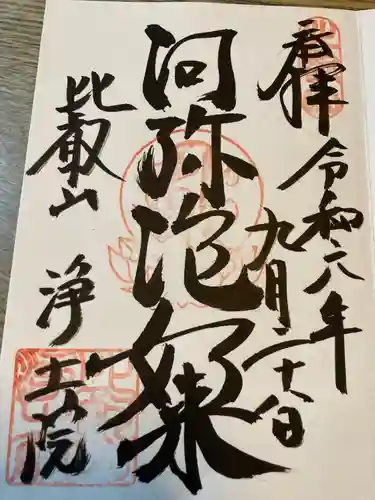 奉拝 令和六年
九月二十八日
阿弥陀如來
比叡山 浄土院